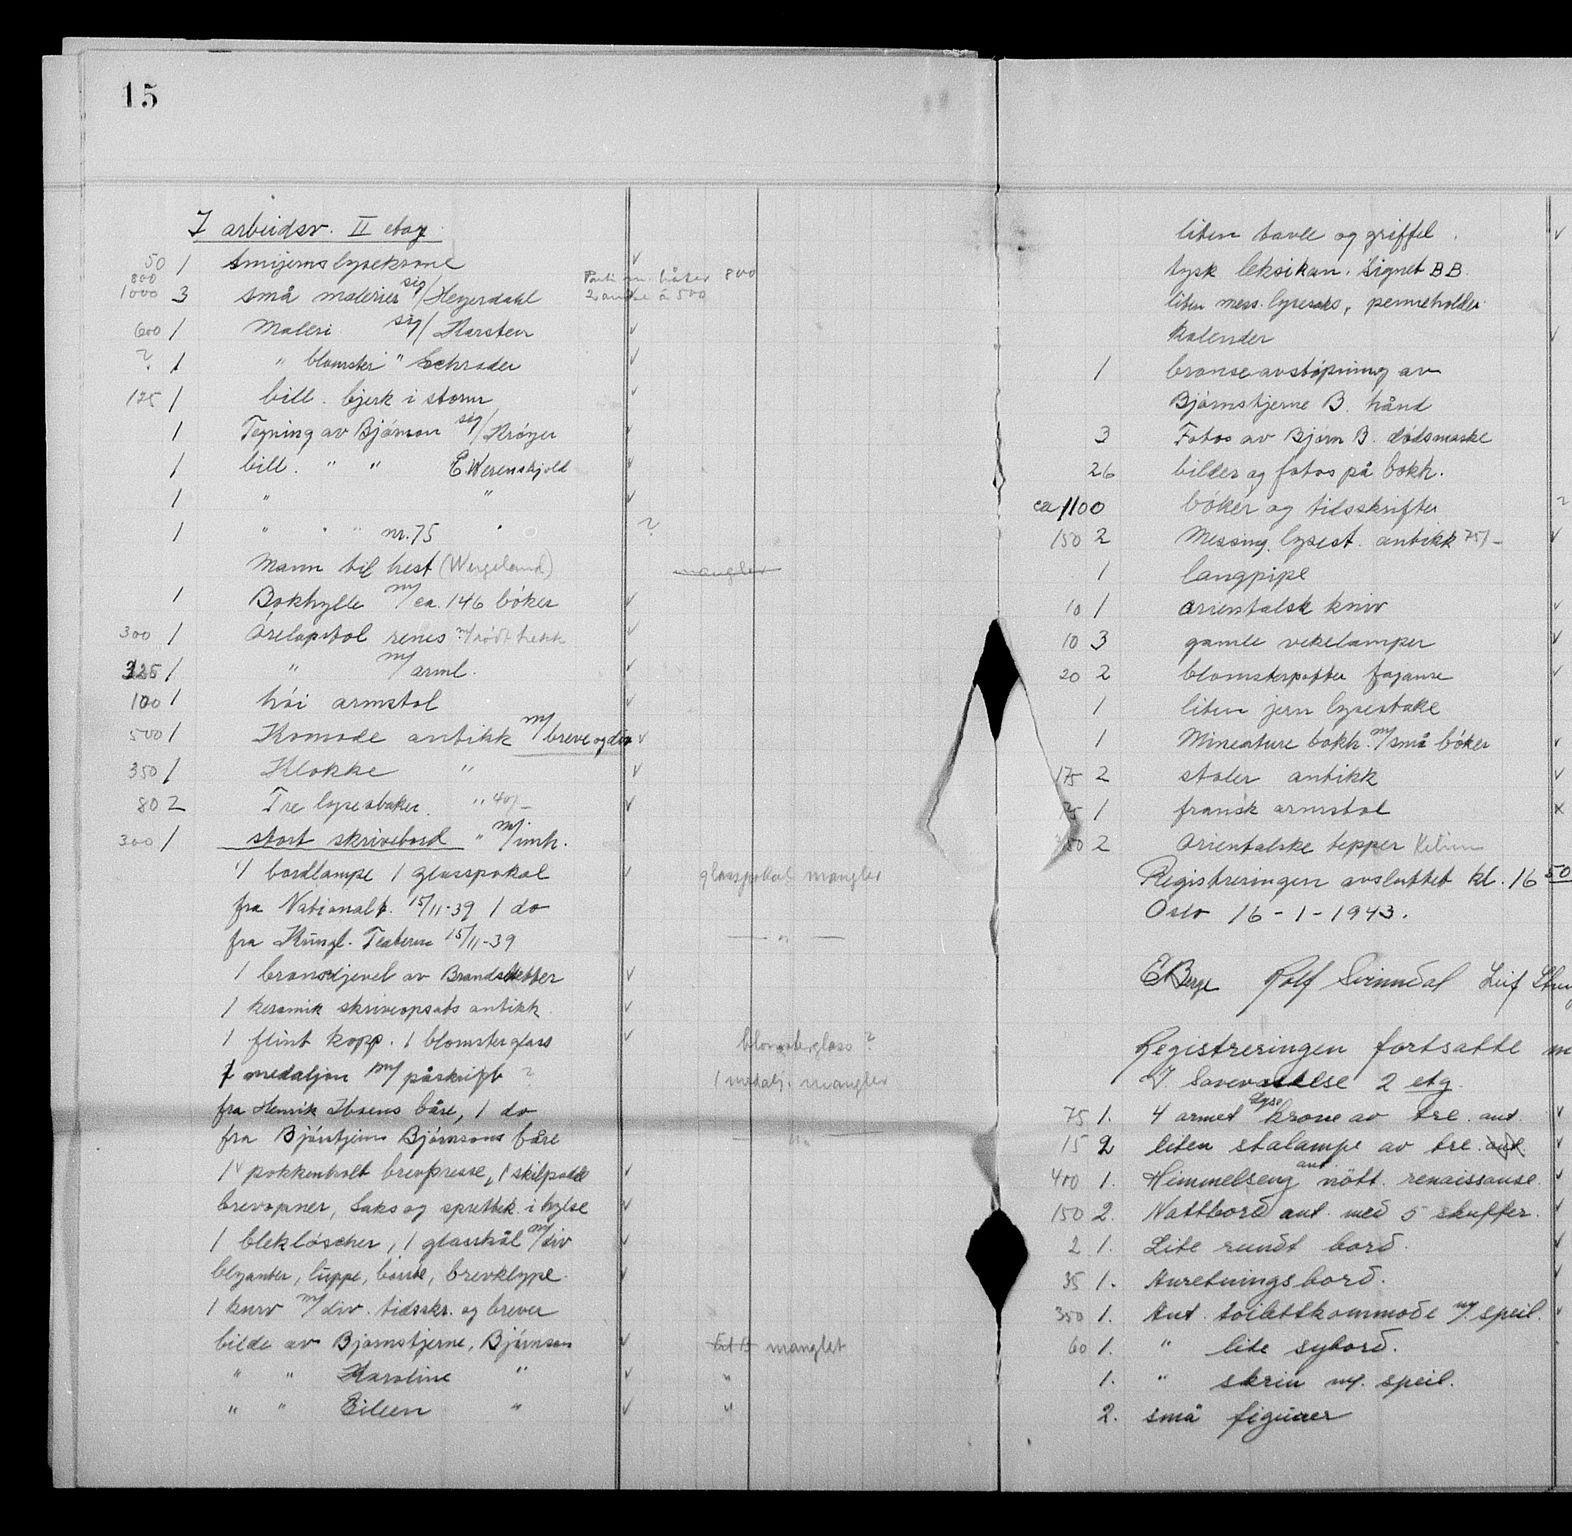 15
I arbeidsv. II etag.
50 1 Smijernslysekrone
800
1000 3 små malerier sig/Heyerdahl
800
2 andre à 500
600 1 Maleri sig/ Karsten
? 1 " blomster " Schrader
125 1 bill. bjerk i storm
1 Tegning av Bjørnson sig/Krøyer
1 bill. " " E. Werenskjold
1 " "
1 " " " nr. 75 " ?
Mann til hest (Wergeland) mangler
1 Bokhylle m/ca. 146 bøker
300 1 Ørelapstol renes m/rødt trekk
325 1 " m/arml.
100 1 høi armstol
500 1 Komode antikk m/breve og div
350 1 Klokke "
80 2 Tre lysestaker. " 40/-
300 1 stort skrivebord " m/innh.
1 bordlampe 1 glasspokal glasspokal mangler
fra Nationalt. 15/11-39 1 do
fra Kungl. Teatern 15/11-39 — " —
1 bronsedjevel av Brandstetter
1 keramik skriveopsats antikk
1 flint kopp. 1 blomsterglass blomsterglass ?
1 medaljon m/påskrift ? 1 medalj. mangler
fra Henrik Ibsens båre, 1 do
fra Bjørnstjerne Bjørnsons båre — " —
1 pokkenholt brevpresse, 1 skilpadde
brevåpner, Saks og sprettek. i hylse
1 bleklöscher, 1 glasskål m/div
blyanter, luppe, børste, brevklype.
1 kurv m/div. tidsskr. og brever
bilde av Bjørnstjerne, Bjørnson manglet
" " Karoline " "
" " Eileen " "
liten tavle og griffel.
tysk leksikon. Signet B B.
liten mess. lysesaks, penneholder
Kalender
1 bronseavstøpning av
Bjørnstjerne B. hånd
3 Fotos av Bjørn B. dødsmaske
26 bilder og fotos på bokh.
ca 1100 bøker og tidsskrifter ?
150 2 Messing. lysest. antikk 75/-
1 langpipe
10 1 orientalsk kniv
10 3 gamle vekelamper
20 2 blomsterpotter fajanse
1 liten jern lysestake
1 Mineature bokh. m/små bøker
175 2 stoler antikk
1 fransk armstol
2 Orientalske tepper Kelim
Registreringen avsluttet kl. 16 50
Oslo 16-1-1943.
E Berge Rolf Svinndal Leif
Registreringen fortsatte
I. Soveværelse 2 etg.
75 1. 4 armet lysekrone av tre. ant.
15 2 liten stålampe av tre. ant.
400 1. Himmelseng ant. nött. renaissanse.
150 2. Nattbord ant. med 5 skuffer.
2 1. Lite rundt bord.
35 1. Anretningsbord.
350 1. Ant. toilettkommode m/. speil.
60 1. " lite sybord.
1. " skrin m/. speil.
2. små figurer